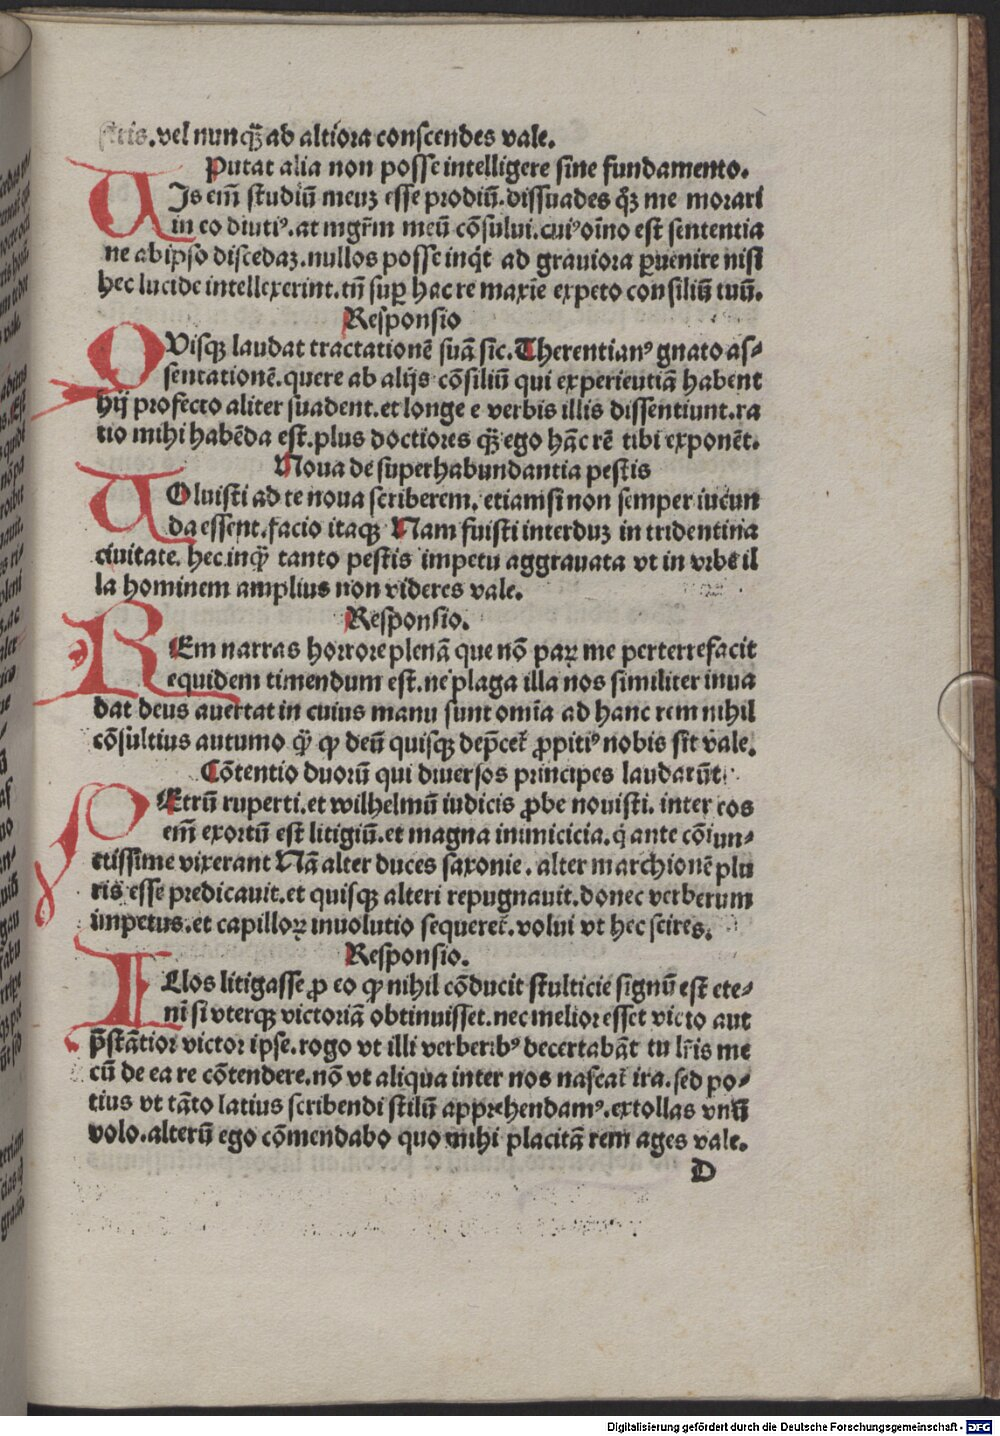 ſtris.vel nunq̄ȝ ab altiora conscendes vale.
Putat alia non posse intelligere sine fundamento.
VIs em̄ studiū meuȝ esse prodiū.dissuades qȝ me morari
in eo diutiꝰ.at mgr̄m meū cōsului.cuiꝰ oīno est sententia
ne ab ipso discedaȝ.nullos posse inqͥt ad graviora ꝑuenire nisi
hec lucide intellexerint.tn̄ suꝑ hac re maxīe expeto consiliū tuū.
Responsio
QVisqȝ laudat tractationē suā sic.Therentianꝰ gnato as⸗
sentationē.quere ab alijs cōsiliū qui experientiā habent
hij profecto aliter suadent.et longe e verbis illis dissentiunt.ra
tio mihi habēda est.plus doctiores qȝ̄ ego hāc rē tibi exponēt.
Noua de superhabundantia pestis
VOluisti ad te noua scriberem, etiamsi non semper iucun
da essent.facio itaqȝ Nam fuisti interduȝ in tridentina
ciuitate. hec inqͣȝ tanto pestis impetu aggrauata vt in vrbe il
la hominem amplius non videres vale.
Responsio.
REm narras horrore plenā que nō paꝝ me perterrefacit
equidem timendum est.ne plaga illa nos similiter inua
dat deus auertat in cuius manu sunt omīa ad hanc rem nihil
cōsultius autumo qȝ̄ ꝙ deū quisqȝ dep̄cet̄ ꝓpitiꝰ nobis sit vale.
Cōtentio duorū qui diuersos principes laudarūt
PEtrū ruperti.et wilhelmū iudicis ꝓbe nouisti. inter eos
em̄ exortū est litigiū.et magna inimicicia.qͥ ante cōiun⸗
ctissime vixerant Nā alter duces saxonie. alter marchionē plu
ris esse predicauit.et quisqȝ alteri repugnauit.donec verberum
impetus.et capilloꝝ inuolutio sequeret̄.volui vt hec scires.
Responsio.
ILlos litigasse ꝓ eo ꝙ nihil cōducit stulticie signū est ete⸗
ni si vterqȝ victoriā obtinuisset.nec melior esset victo aut
p̄stātior victor ipse.rogo vt illi verberibꝰ decertabāt tu lr̄is me
cū de ea re cōtendere.nō vt aliqua inter nos nascat̄ ira.sed po⸗
tius vt tāto latius scribendi stilū apprehendamꝰ.extollas vnū
volo.alterū ego cōmendabo quo mihi placitā rem ages vale.
D
Digitalisierung gefördert durch die Deutsche Forschungsgemeinschaft - DFG